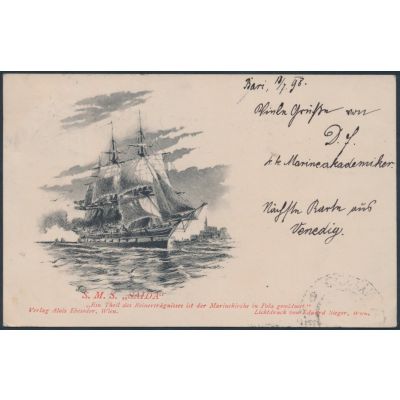 Bari, 12/7 98.
Viele Grüße von
D. f.
k. k. Marineakademiker.
Nächste Karte aus
Venedig.
S. M. S. „SAIDA"
„Ein Theil des Reinerträgnisses ist der Marinekirche in Pola gewidmet."
Verlag Alois Ebeseder, Wien.
Lichtdruck von Eduard Sieger, Wien.